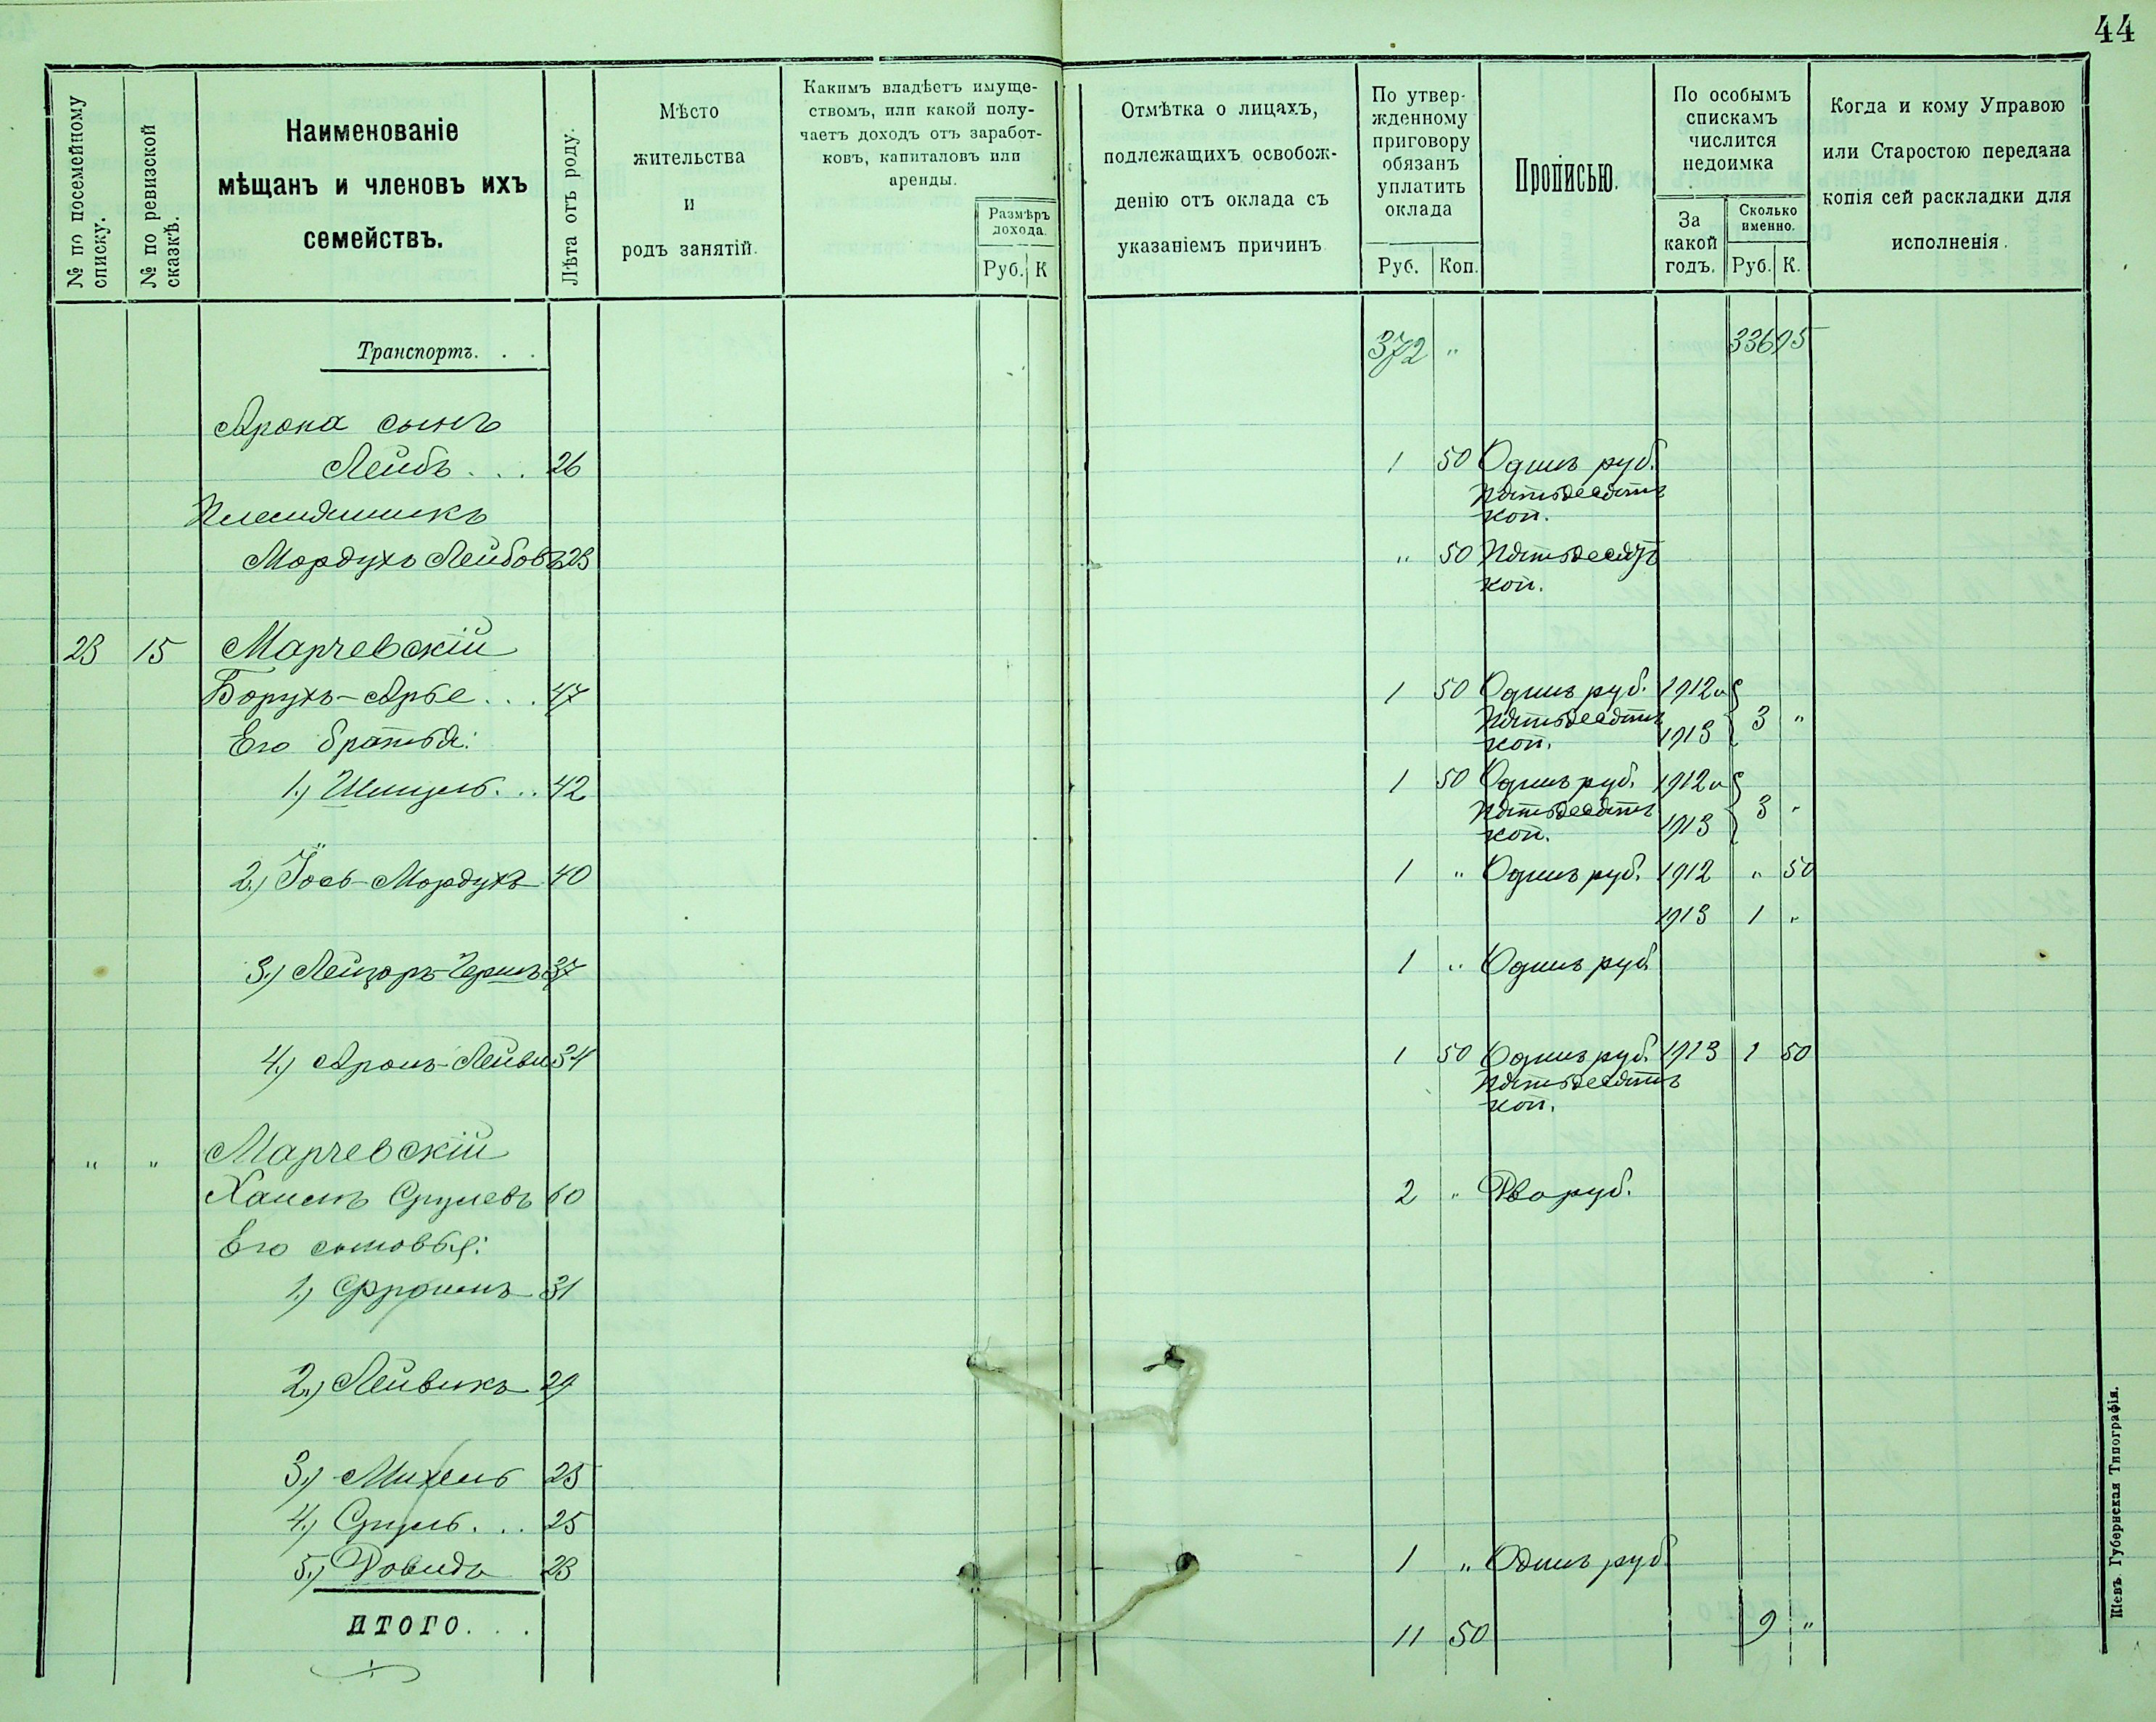 44
№ по посемейному списку.
№ по ревизской сказкѣ.
Наименованіе
мѣщанъ и членовъ ихъ
семействъ.
Лѣта отъ роду.
Мѣсто
жительства
и
родъ занятій.
Какимъ владѣетъ имуще-
ствомъ, или какой полу-
чаетъ доходъ отъ заработ-
ковъ, капиталовъ или
аренды.
Размѣръ
дохода.
Руб. К
Отмѣтка о лицахъ,
подлежащихъ освобож-
денію отъ оклада съ
указаніемъ причинъ
По утвер-
жденному
приговору
обязанъ
уплатить
оклада
Руб. Коп.
Прописью.
По особымъ
спискамъ
числится
недоимка
За
какой
годъ.
Сколько
именно.
Руб. К.
Когда и кому Управою
или Старостою передана
копія сей раскладки для
исполненія.
Транспортъ. . . 372 " 336 95
Арона сынъ
Лейбъ . . . 26 1 50 Одинъ руб.
пятьдесятъ
коп.
Племянникъ
Мордухъ Лейбовъ 23 " 50 Пятьдесятъ
коп.
23 15 Марчевскій
Борухъ-Арье . . . 47 1 50 Одинъ руб. 1912 и
пятьдесятъ 1913 3 "
коп.
Его братья:
1.) Шмуль . . . 42 1 50 Одинъ руб. 1912 и
пятьдесятъ 1913 3 "
коп.
2.) Іось-Мордухъ 40 1 " Одинъ руб. 1912 " 50
1913 1 "
3.) Лейзоръ-Гершъ 37 1 " Одинъ руб.
4.) Аронъ-Лейви 34 1 50 Одинъ руб. 1913 1 50
пятьдесятъ
коп.
" " Марчевскій
Хаимъ Срулевъ 60 2 " Два руб.
Его сыновья:
1.) Фроимъ 31
2.) Лейвикъ 29
3.) Михель 25
4.) Сруль . . . 25
5.) Довидъ 23 1 " Одинъ руб.
ИТОГО. . . 11 50 9 "
Кіевъ. Губернская Типографія.